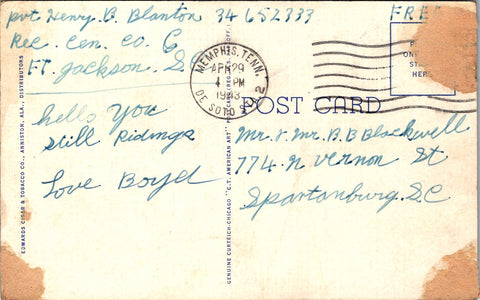 Pvt Henry B. Blanton 34652333
Rec. Cen. Co. C
Ft. Jackson S.C.
FREE
MEMPHIS, TENN.
APR 29
4 PM
1943
DE SOTO STA. 2
POST CARD
hello You
still Ridings
Love Boyd
Mr. & Mr. B.B Blackwell
774. N Vernon St
Spartanburg. S.C
EDWARDS CIGAR & TOBACCO CO., ANNISTON, ALA., DISTRIBUTORS
GENUINE CURTEICH-CHICAGO "C.T. AMERICAN ART" POST CARD
HERE